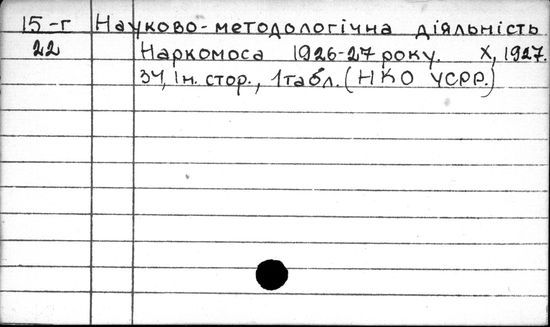 15-г Науково-методологічна діяльність
22 Наркомоса 1926-27 року. X, 1927.
34, Ін. стор., 1 табл. (НКО УСРР.)